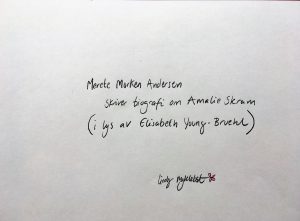 Merete Morken Andersen
skriver biografi om Amalie Skram
(i lys av Elisabeth Young-Bruehl)